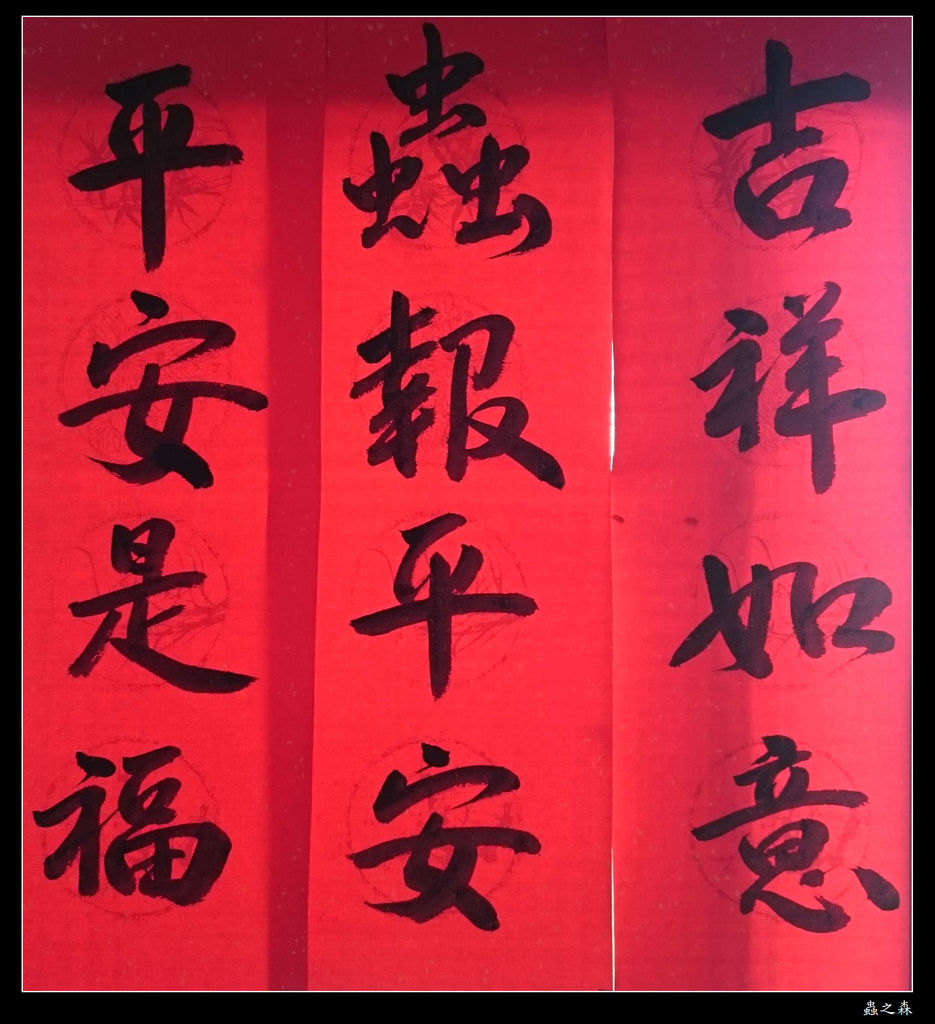 吉祥如意
蟲報平安
平安是福
蟲之森